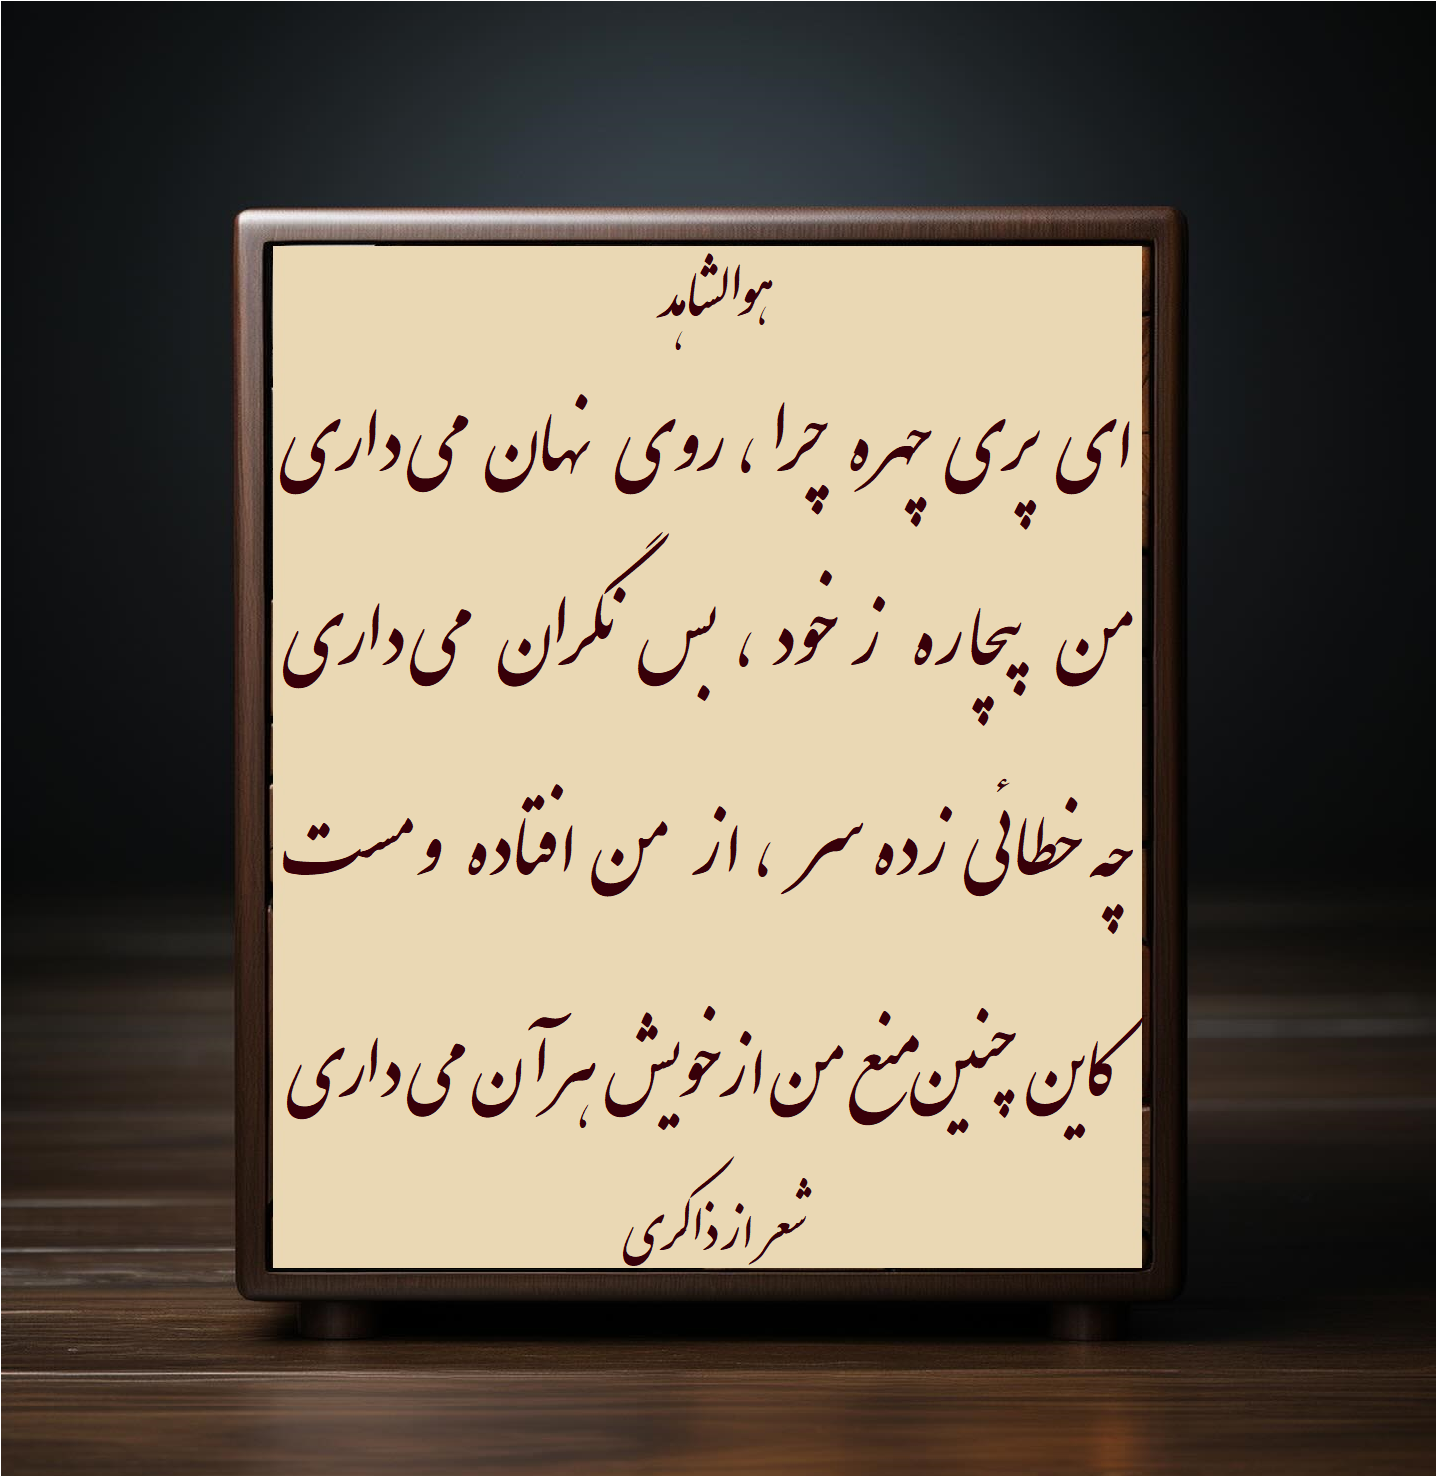 هوالشاهد
ای پری چهره چرا ، روی نهان می‌داری
من بیچاره ز خود ، بس نگران می‌داری
چه خطائی زده سر ، از من افتاده و مست
کاین چنین منع من از خویش هر آن می‌داری
شعر از ذاکری